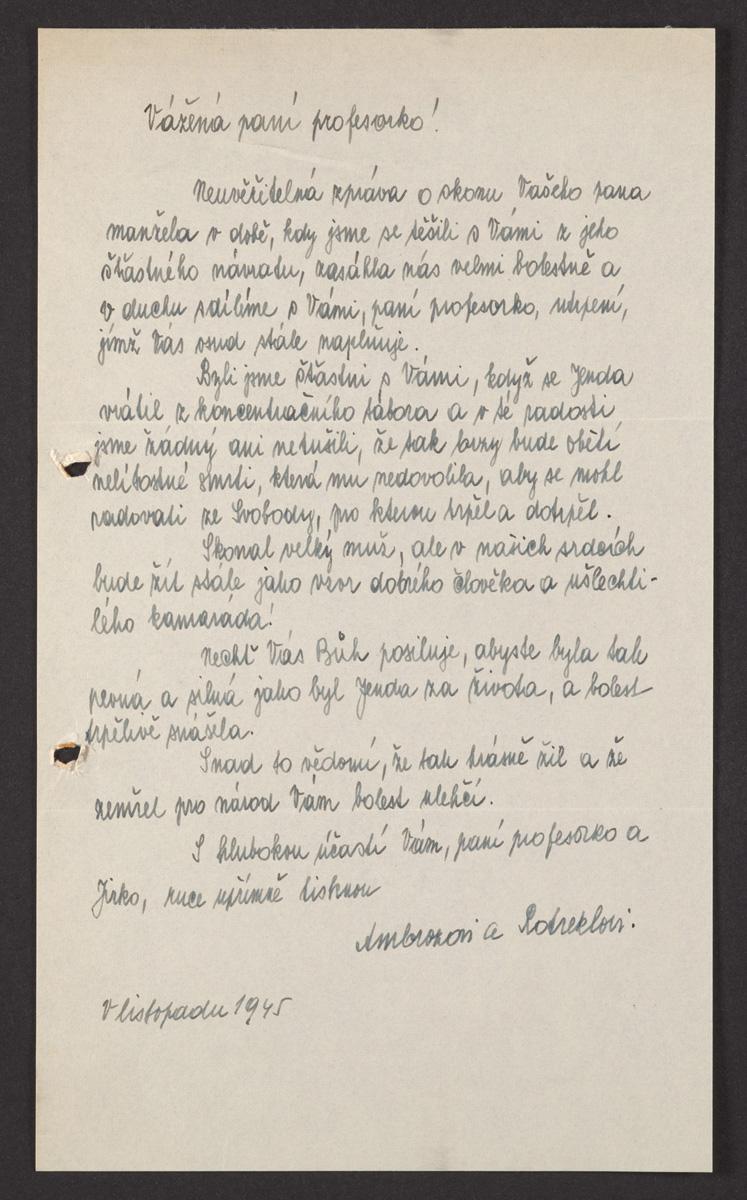 Vážená paní profesorko!
Neuvěřitelná zpráva o skonu Vašeho pana
manžela v době, kdy jsme se těšili s Vámi z jeho
šťastného návratu, zasáhla nás velmi bolestně a
v duchu sdílíme s Vámi, paní profesorko, utrpení,
jímž Vás osud stále naplňuje.
Byli jsme šťastni s Vámi, když se Jenda
vrátil z koncentračního tábora a v té radosti
jsme žádný ani netušili, že tak brzy bude obětí
nelítostné smrti, která mu nedovolila, aby se mohl
radovati ze Svobody, pro kterou trpěl a dotrpěl.
Skonal velký muž, ale v našich srdcích
bude žít stále jako vzor dobrého člověka a ušlechti-
lého kamaráda!
Nechť Vás Bůh posiluje, abyste byla tak
pevná a silná jako byl Jenda za života, a bolest
trpělivě snášela.
Snad to vědomí, že tak krásně žil a že
zemřel pro národ Vám bolest ulehčí.
S hlubokou účastí Vám, paní profesorko a
Jirko, ruce upřímně tisknou
Ambrozovi a Potreklovi.
V listopadu 1945